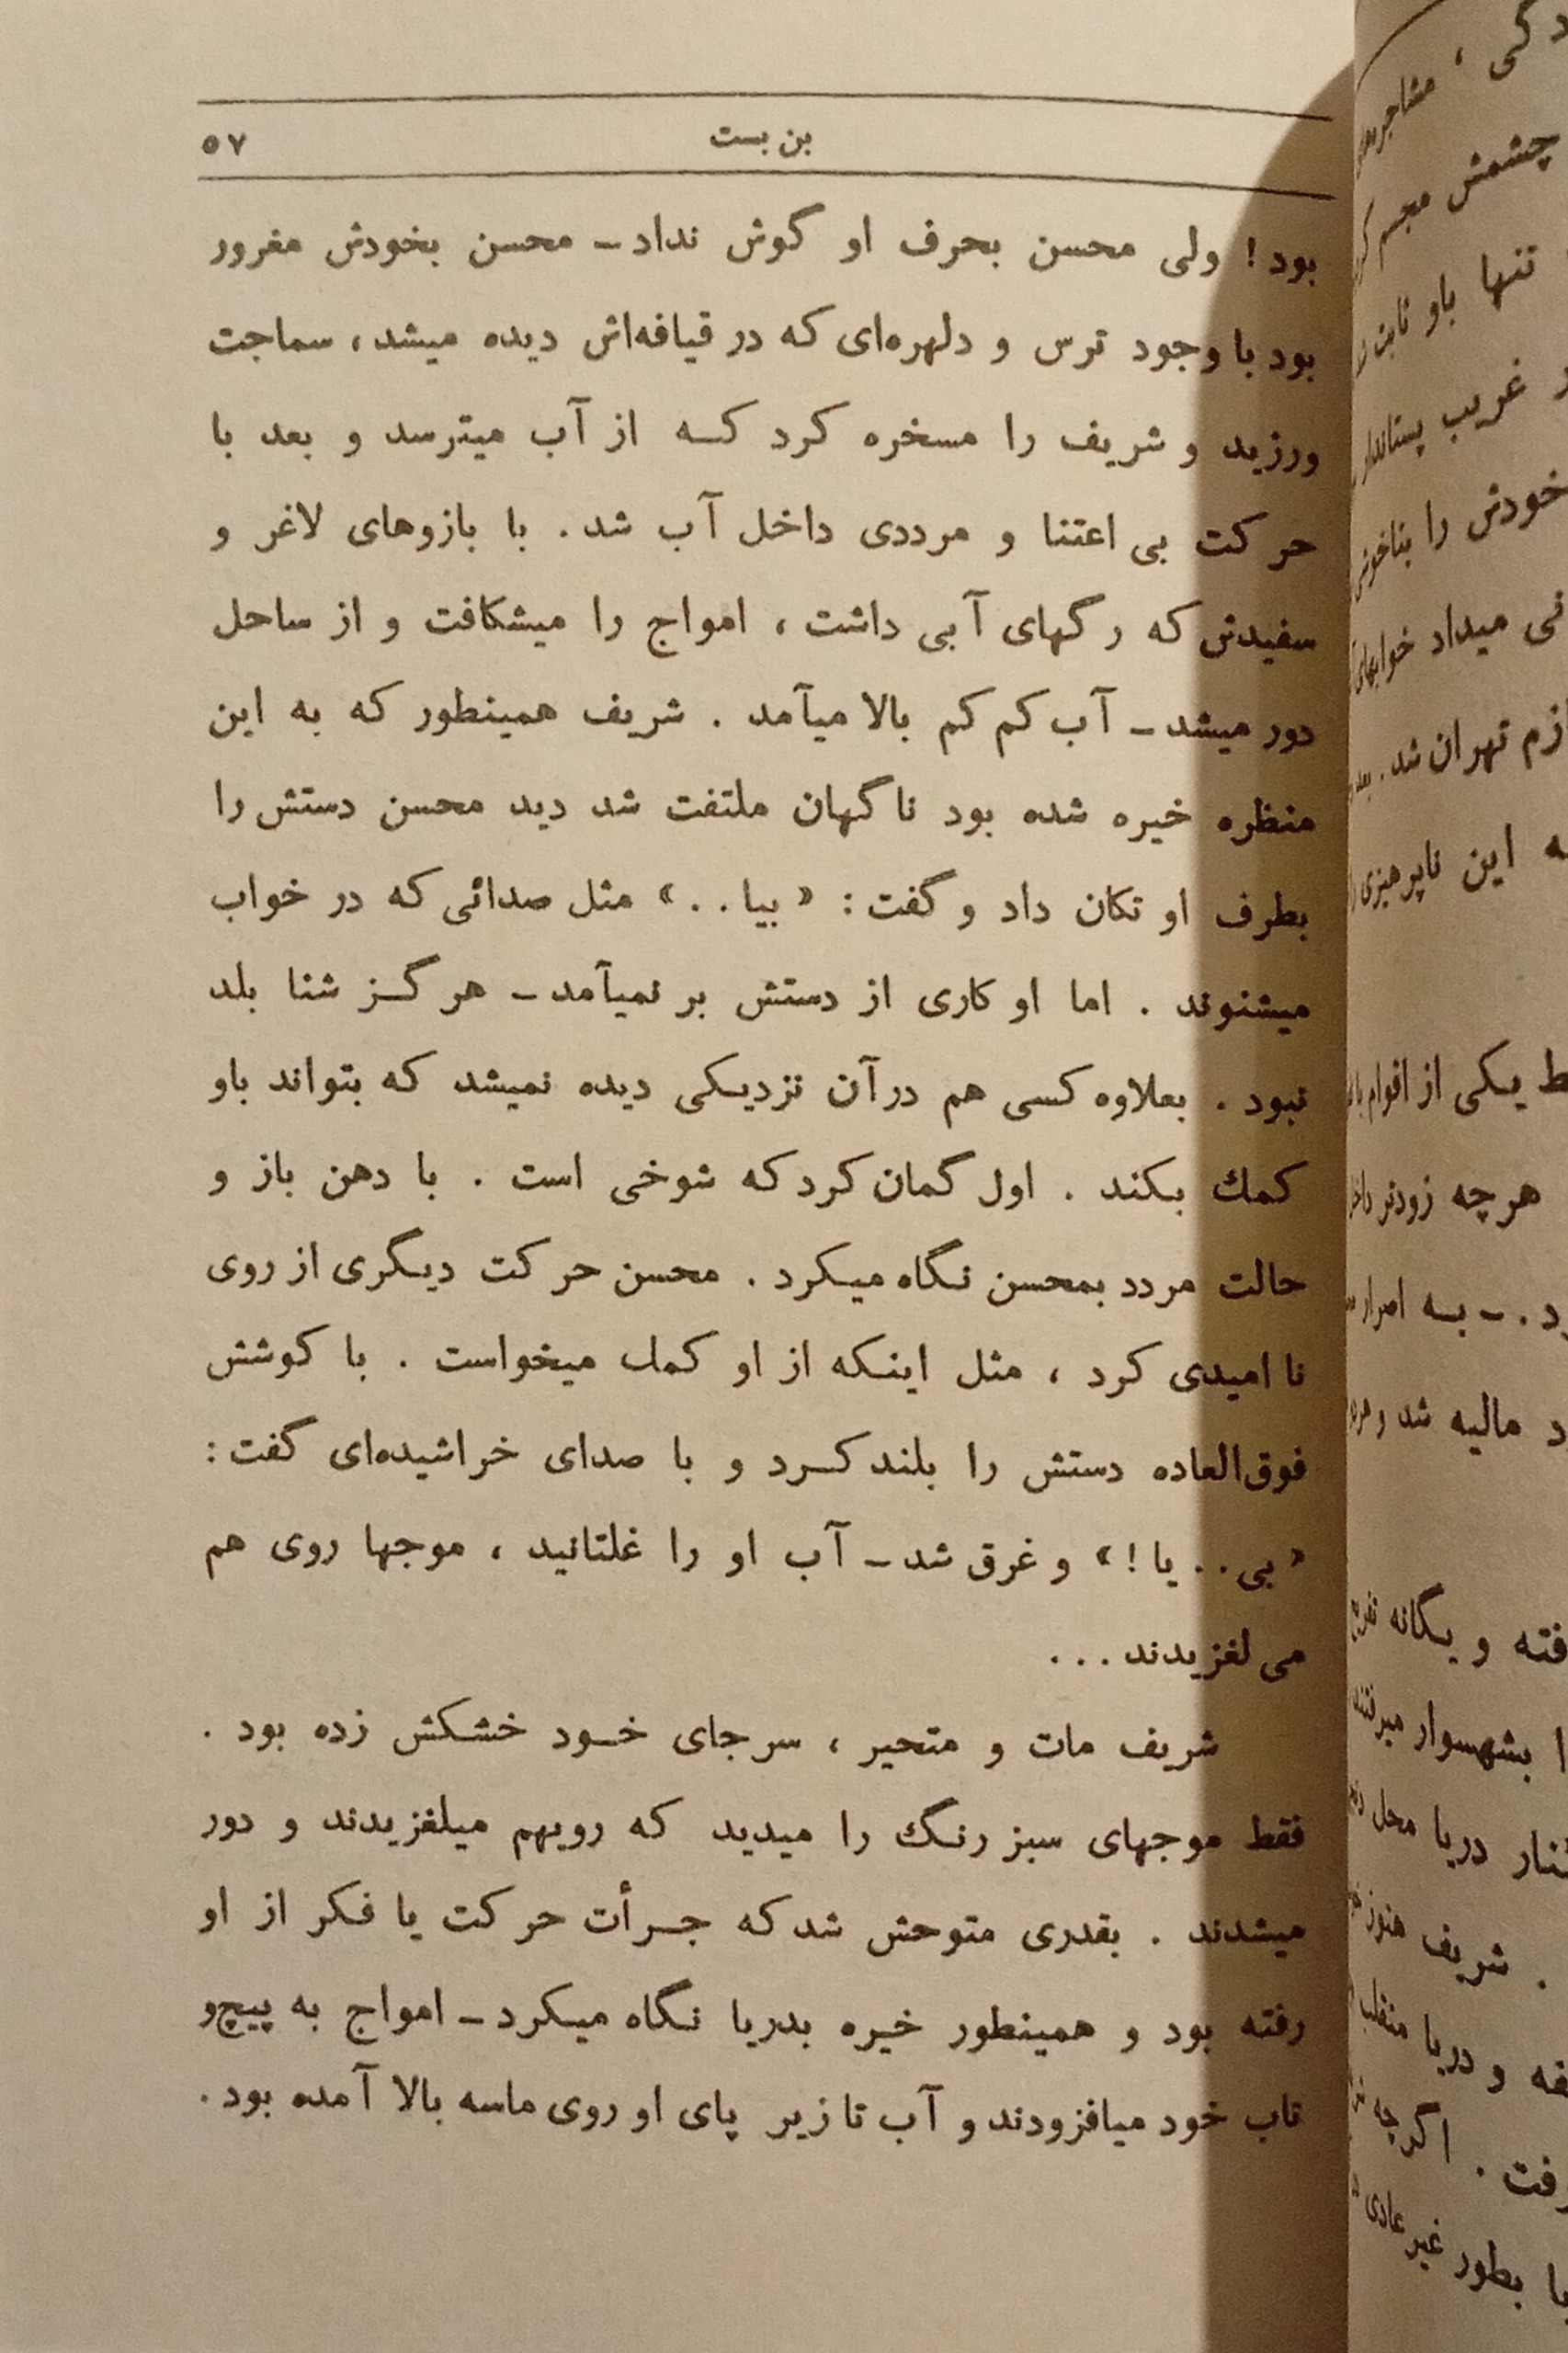 بن بست
۵۷
بود ! ولی محسن بحرف او گوش نداد ـ محسن بخودش مغرور
بود با وجود ترس و دلهره‌ای که در قیافه‌اش دیده میشد ، سماجت
ورزید و شریف را مسخره کرد کـه از آب میترسد و بعد با
حرکت بی اعتنا و مرددی داخل آب شد . با بازوهای لاغر و
سفیدش که رگهای آبی داشت ، امواج را میشکافت و از ساحل
دور میشد ـ آب کم کم بالا میآمد . شریف همینطور که به این
منظره خیره شده بود ناگهان ملتفت شد دید محسن دستش را
بطرف او تکان داد و گفت : « بیا . . » مثل صدائی که در خواب
میشنوند . اما او کاری از دستش بر نمیآمد ـ هرگـز شنا بلد
نبود . بعلاوه کسی هم در آن نزدیـکی دیده نمیشد که بتواند باو
کمك بـکند . اول گمان کرد که شوخی است . با دهن باز و
حالت مردد بمحسن نـگاه میـکرد . محسن حرکت دیـگری از روی
نا امیدی کرد ، مثل اینـکه از او کمك میخواست . با کوشش
فوق‌العاده دستش را بلند کـرد و با صدای خراشیده‌ای گفت :
« بی . . یا ! » و غرق شد ـ آب او را غلتانید ، موجها روی هم
می لغزیدند . . .
شریف مات و متحیر ، سر جای خـود خشـکش زده بود .
فقط موجهای سبز رنـگ را میدید که رویهم میلغزیدند و دور
میشدند . بقدری متوحش شد که جـرأت حرکت یا فـکر از او
رفته بود و همینطور خیره بدریا نـگاه میـکرد ـ امواج به پیچ و
تاب خود میافزودند و آب تا زیر پای او روی ماسه بالا آمده بود .
چشمش
تنها باو
غریب
خودش را
میداد
تهران شد .
این ناپرهیزی
یـکی از اقوام
هرچه زودتر
بـه اصرار
مالیه شد
و یـگانه
بشهسوار میرفتند
دریا محل
. شریف هنوز
و دریا منقلب
. اگر چه
بطور غیر عادی